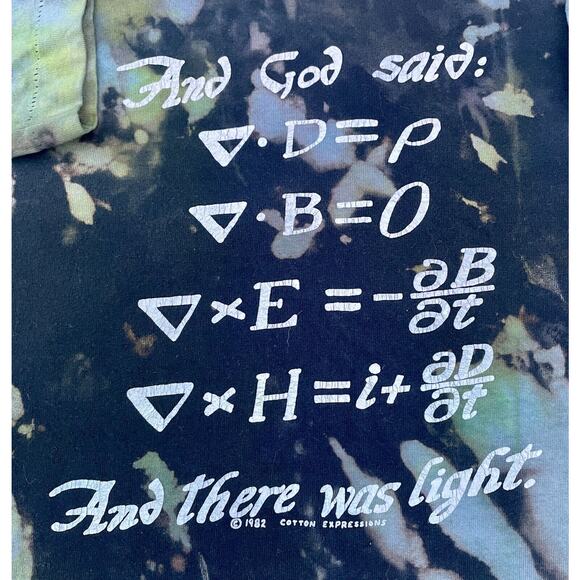 And God said:
∇·D=ρ
∇·B=0
∇×E=-∂B/∂t
∇×H=i+∂D/∂t
And there was light.
© 1982 COTTON EXPRESSIONS